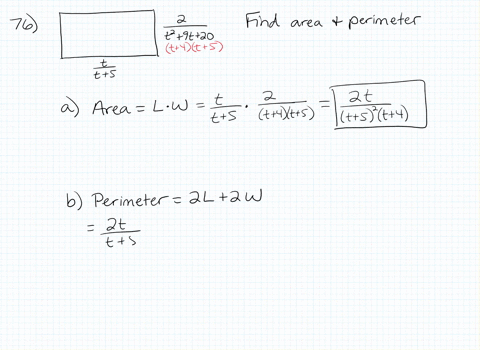 76) 2/(t²+9t+20) Find area + perimeter
(t+4)(t+5)
t/(t+5)
a) Area = L·W = t/(t+5) · 2/((t+4)(t+5)) = 2t/((t+5)²(t+4))
b) Perimeter = 2L + 2W
= 2t/(t+5)